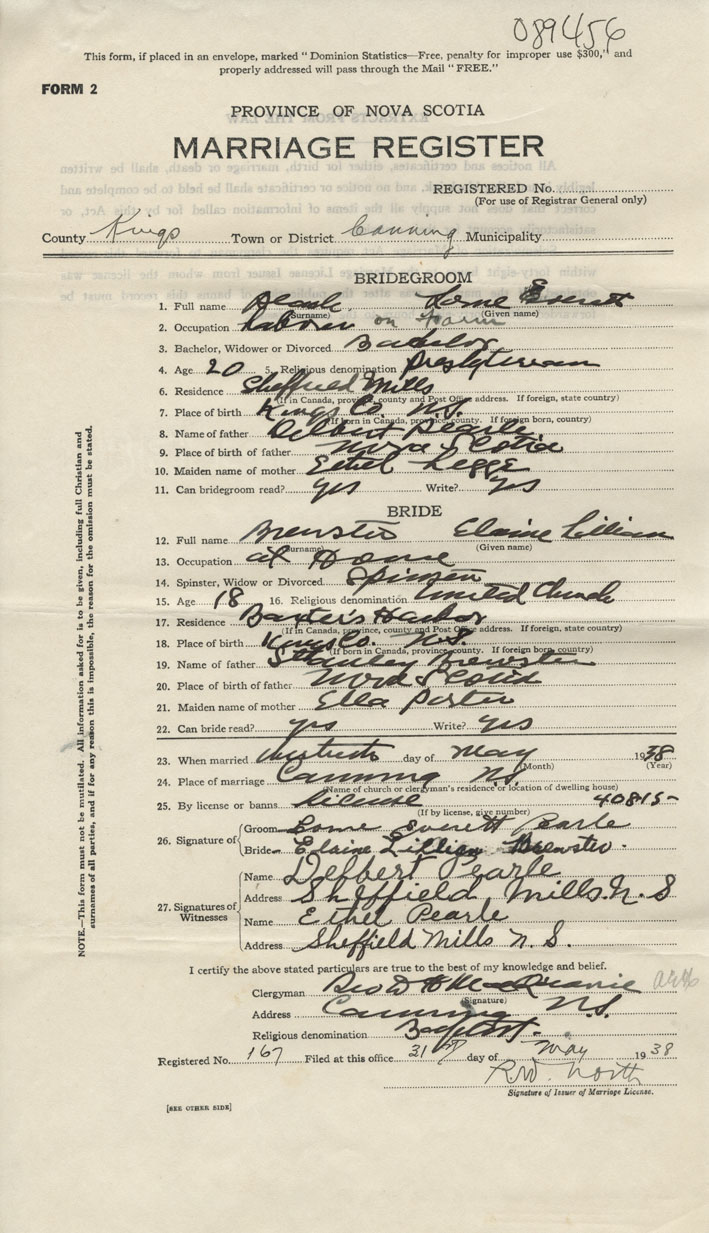 089456
This form, if placed in an envelope, marked "Dominion Statistics—Free, penalty for improper use $300," and
properly addressed will pass through the Mail "FREE."
FORM 2
PROVINCE OF NOVA SCOTIA
MARRIAGE REGISTER
REGISTERED No.
(For use of Registrar General only)
County Kings Town or District Canning Municipality
BRIDEGROOM
1. Full name Pearle Lorne Everett
(Surname) (Given name)
2. Occupation Laborer on Farm
3. Bachelor, Widower or Divorced Bachelor
4. Age 20 5. Religious denomination Presbyterian
6. Residence Sheffield Mills
(If in Canada, province, county and Post Office address. If foreign, state country)
7. Place of birth Kings Co. N.S.
(If born in Canada, province, county. If foreign born, country)
8. Name of father Delbert Pearle
9. Place of birth of father Nova Scotia
10. Maiden name of mother Ethel Legge
11. Can bridegroom read? yes Write? yes
BRIDE
12. Full name Brewster Elaine Lillian
(Surname) (Given name)
13. Occupation at Home
14. Spinster, Widow or Divorced Spinster
15. Age 18 16. Religious denomination United Church
17. Residence Baxter's Harbor
(If in Canada, province, county and Post Office address. If foreign, state country)
18. Place of birth Kings Co. N.S.
(If born in Canada, province, county. If foreign born, country)
19. Name of father Stanley Brewster
20. Place of birth of father Nova Scotia
21. Maiden name of mother Ella Porter
22. Can bride read? yes Write? yes
23. When married day of May 1938
(Month) (Year)
24. Place of marriage Canning NS
(Name of church or clergyman's residence or location of dwelling house)
25. By license or banns license 40815
(If by license, give number)
26. Signature of
Groom Lorne Everett Pearle
Bride Elaine Lillian Brewster.
27. Signatures of Witnesses
Name Delbert Pearle
Address Sheffield Mills. N. S
Name Ethel Pearle
Address Sheffield Mills N. S.
I certify the above stated particulars are true to the best of my knowledge and belief.
Clergyman Geo D H
(Signature)
Address Canning NS.
Religious denomination Baptist.
Registered No. 167 Filed at this office 31st day of May 1938
R.W. North
Signature of Issuer of Marriage License.
[SEE OTHER SIDE]
NOTE.—This form must not be mutilated. All information asked for is to be given, including full Christian and
surnames of all parties, and if for any reason this is impossible, the reason for the omission must be stated.